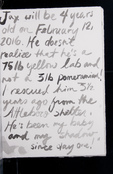 Jax will be 4 years
old on February 12,
2016. He doesn't
realize that he's a
75lb yellow lab and
not a 3lb pomeranian!
I rescued him 3½
years ago from the
Attleboro Shelter.
He's been my baby
and my shadow
since day one!